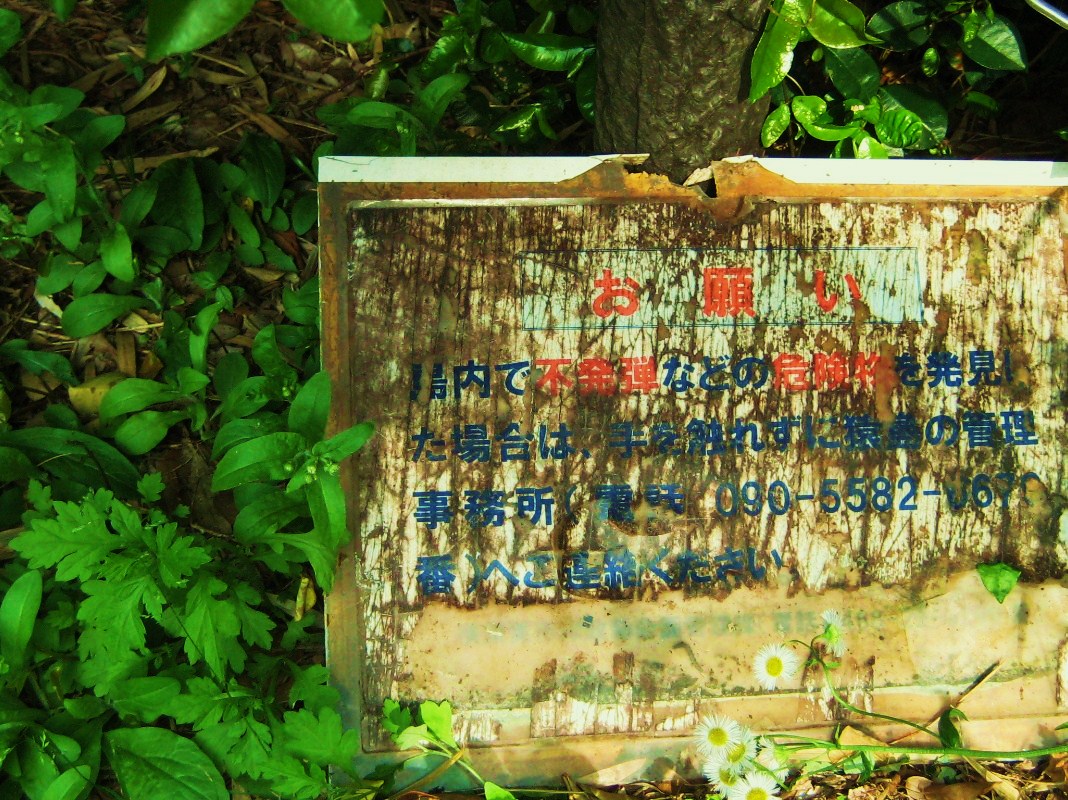 お願い
島内で不発弾などの危険物を発見し
た場合は、手を触れずに猿島の管理
事務所(電話 090-5582-067
番)へご連絡ください